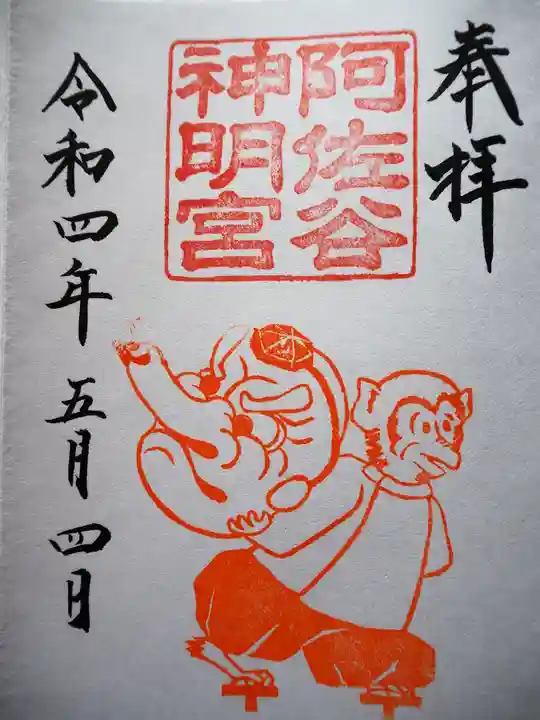 奉拝
阿佐谷
神明宮
令和四年五月四日